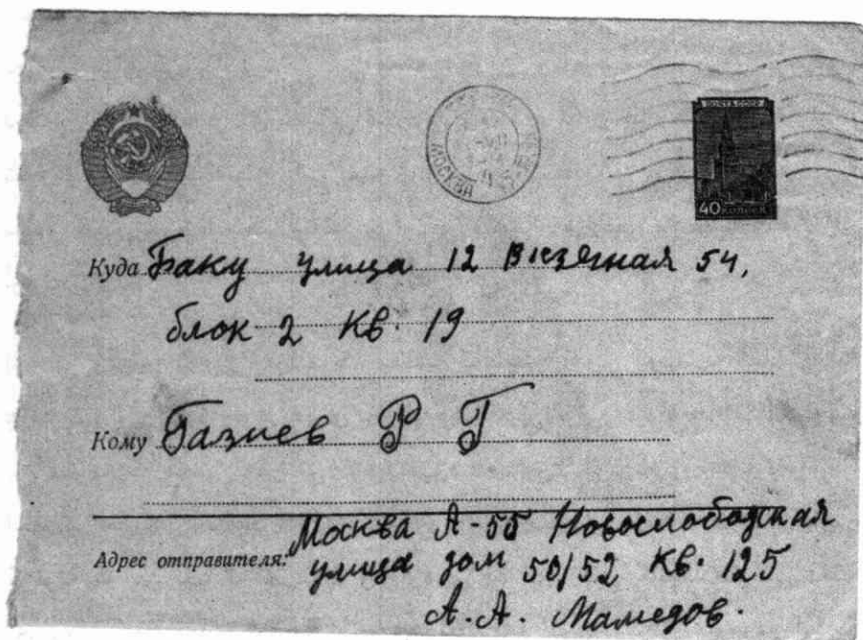 ПОЧТА СССР
МОСКВА
40 КОПЕЕК
Куда Баку улица 12 54,
блок 2 кв. 19
Кому Газиев Р Г
Адрес отправителя: Москва А-55 Новослободская
улица дом 50/52 кв. 125
А.А. Мамедов.